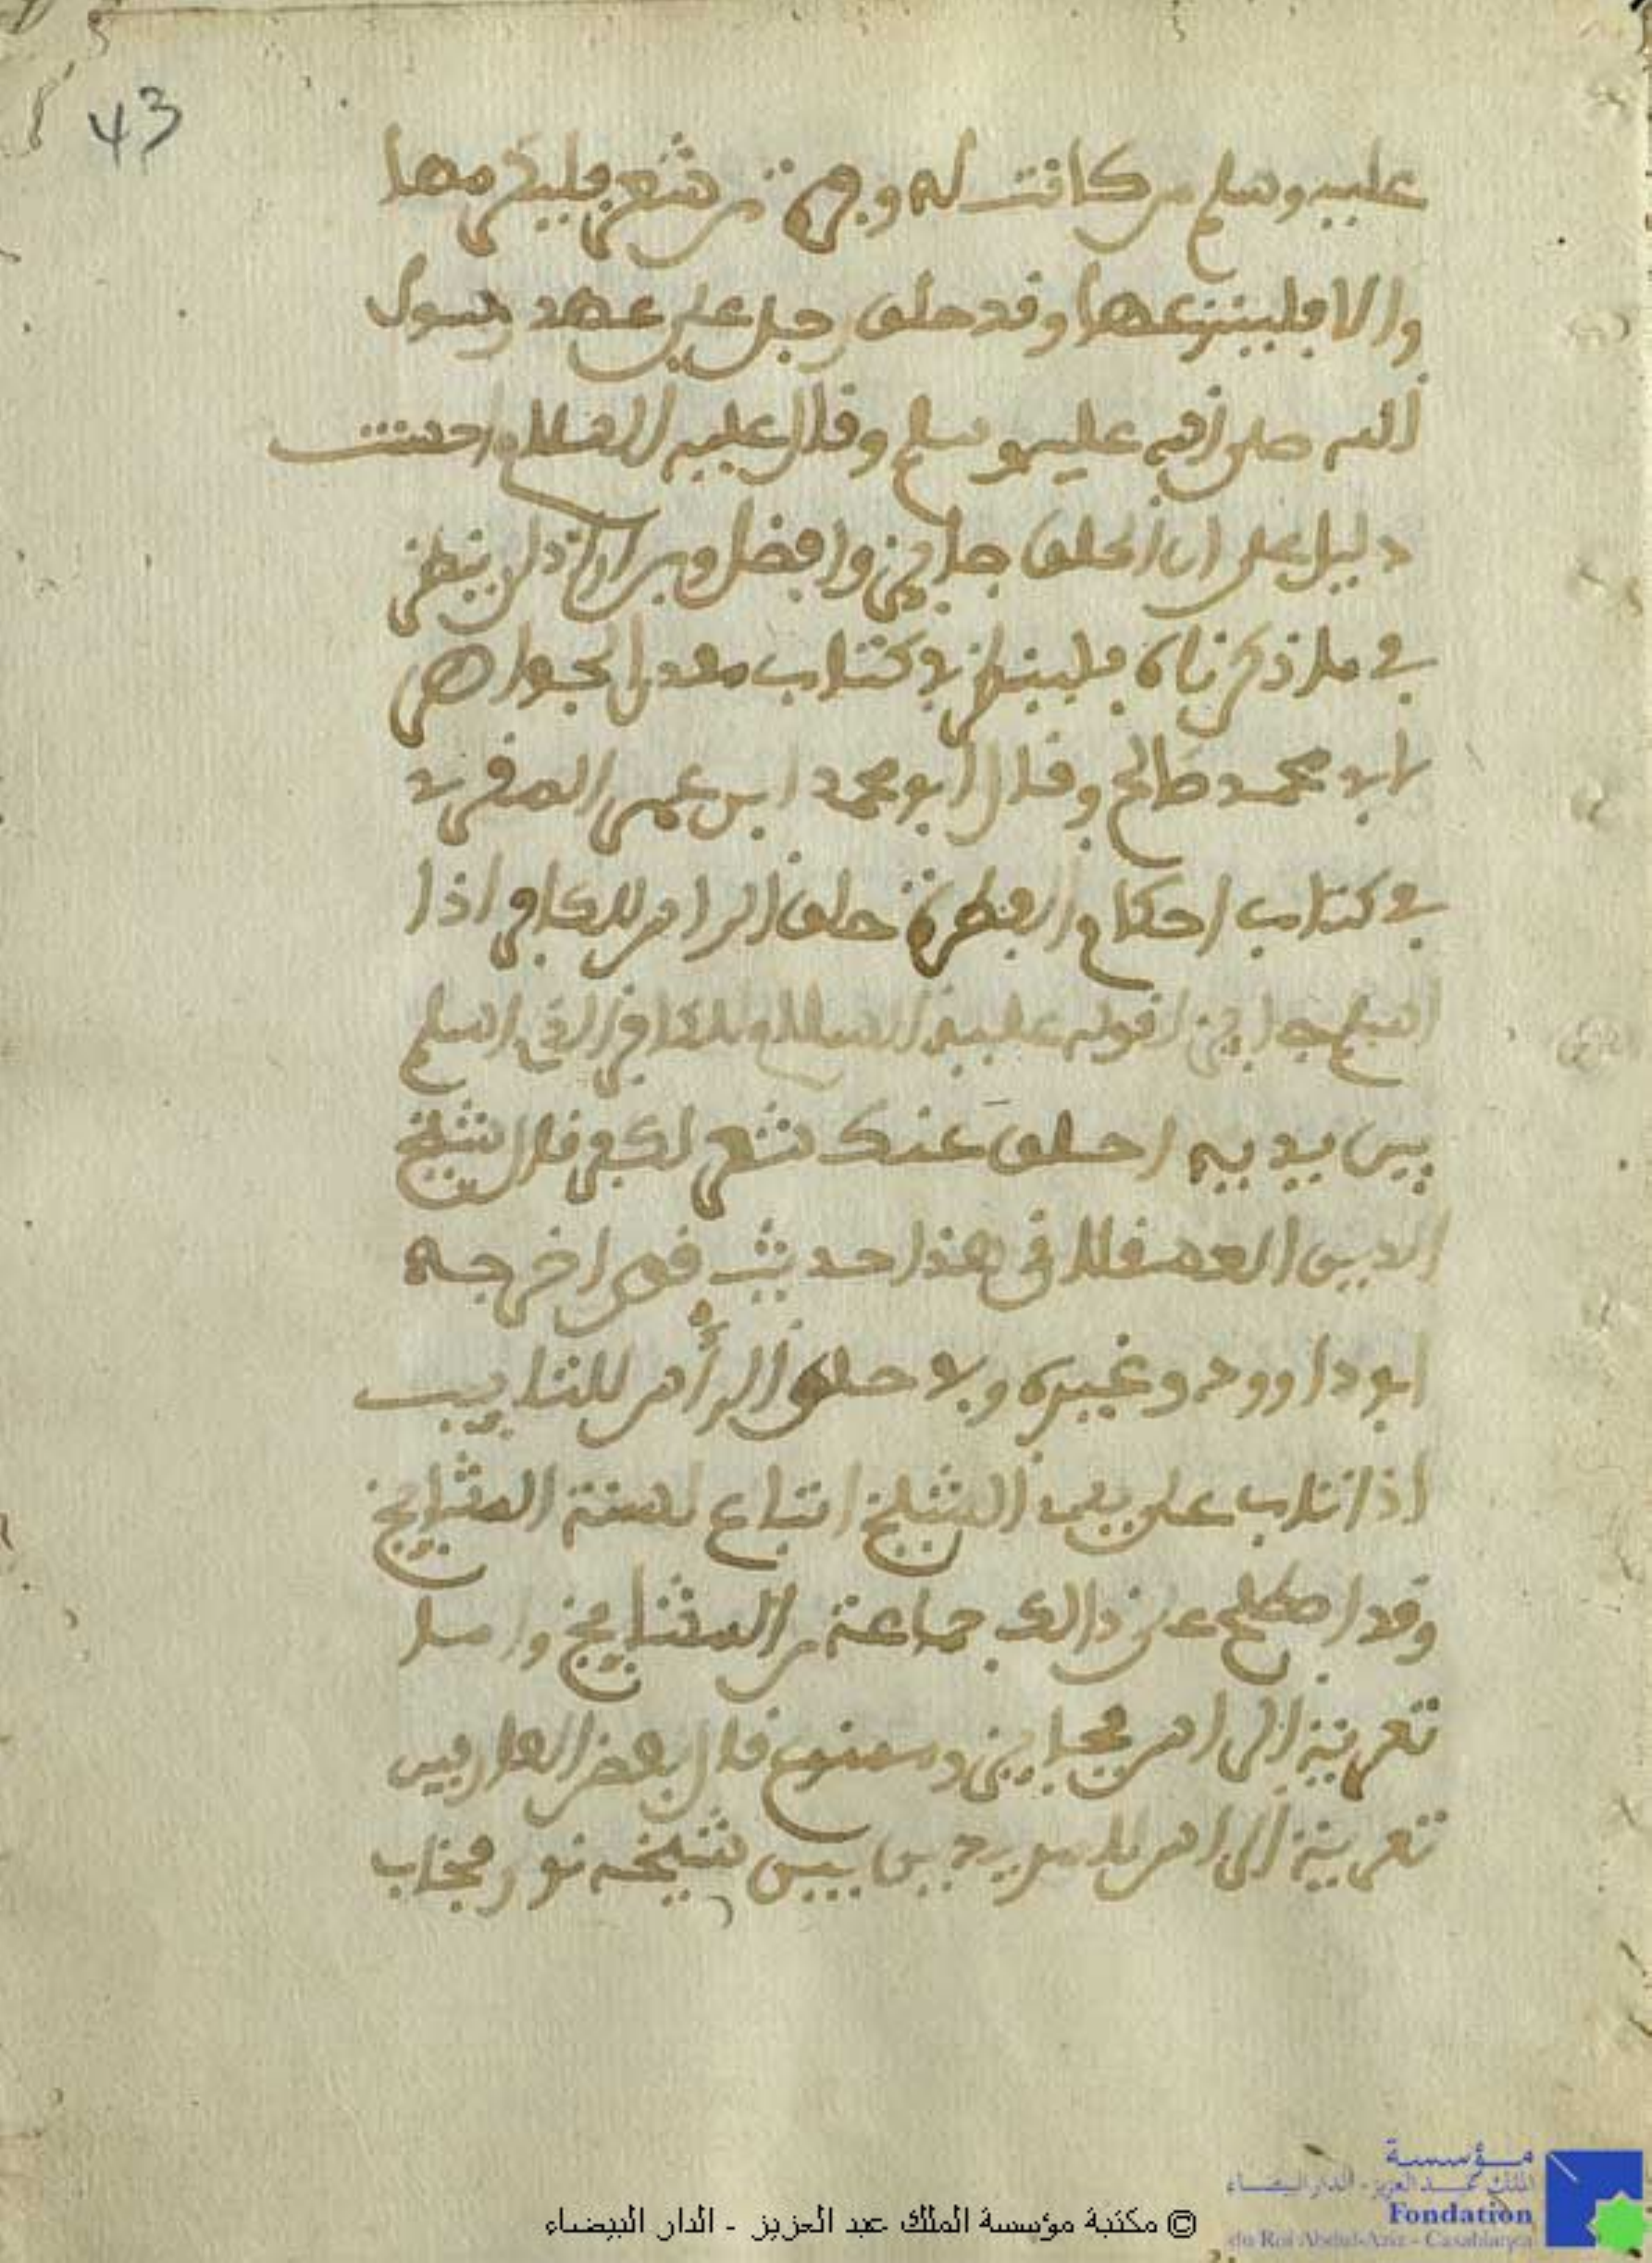 43
عليه وسلم من كانت له وفرة من شعر فليكرمها
والا فلينزعها وقد حلق رجل على عهد رسول
الله صلى الله عليه وسلم وقال عليه السلام احسنت
دليل على ان الحلق جايز وافضل ومن اراد ان ينظر
في ما ذكرناه فلينظر في كتاب معدن الجواهر
لابي محمد صالح وقال ابو محمد ابن عمر المقري
في كتاب احكام الفطرة حلق الراس للكافر اذا
اسلم جايز لقوله عليه السلام للكافر الذي اسلم
بين يديه احلق عنك شعر الكفر قال
الدين العسقلاني هذا حديث اخرجه
ابو داوود وغيره وفي حلق الرأس للتايب
اذا تاب على يد الشيخ اتباع لسنة المشايخ
وقد اصطلح على ذالك جماعة من المشايخ واما
تعرية الراس فجايز و قال بعض العارفين
تعرية الراس بين شيخه
© مكتبة مؤسسة الملك عبد العزيز - الدار البيضاء
مؤسسة
الملك عبد العزيز - الدار البيضاء
Fondation
du Roi Abdul-Aziz - Casablanca